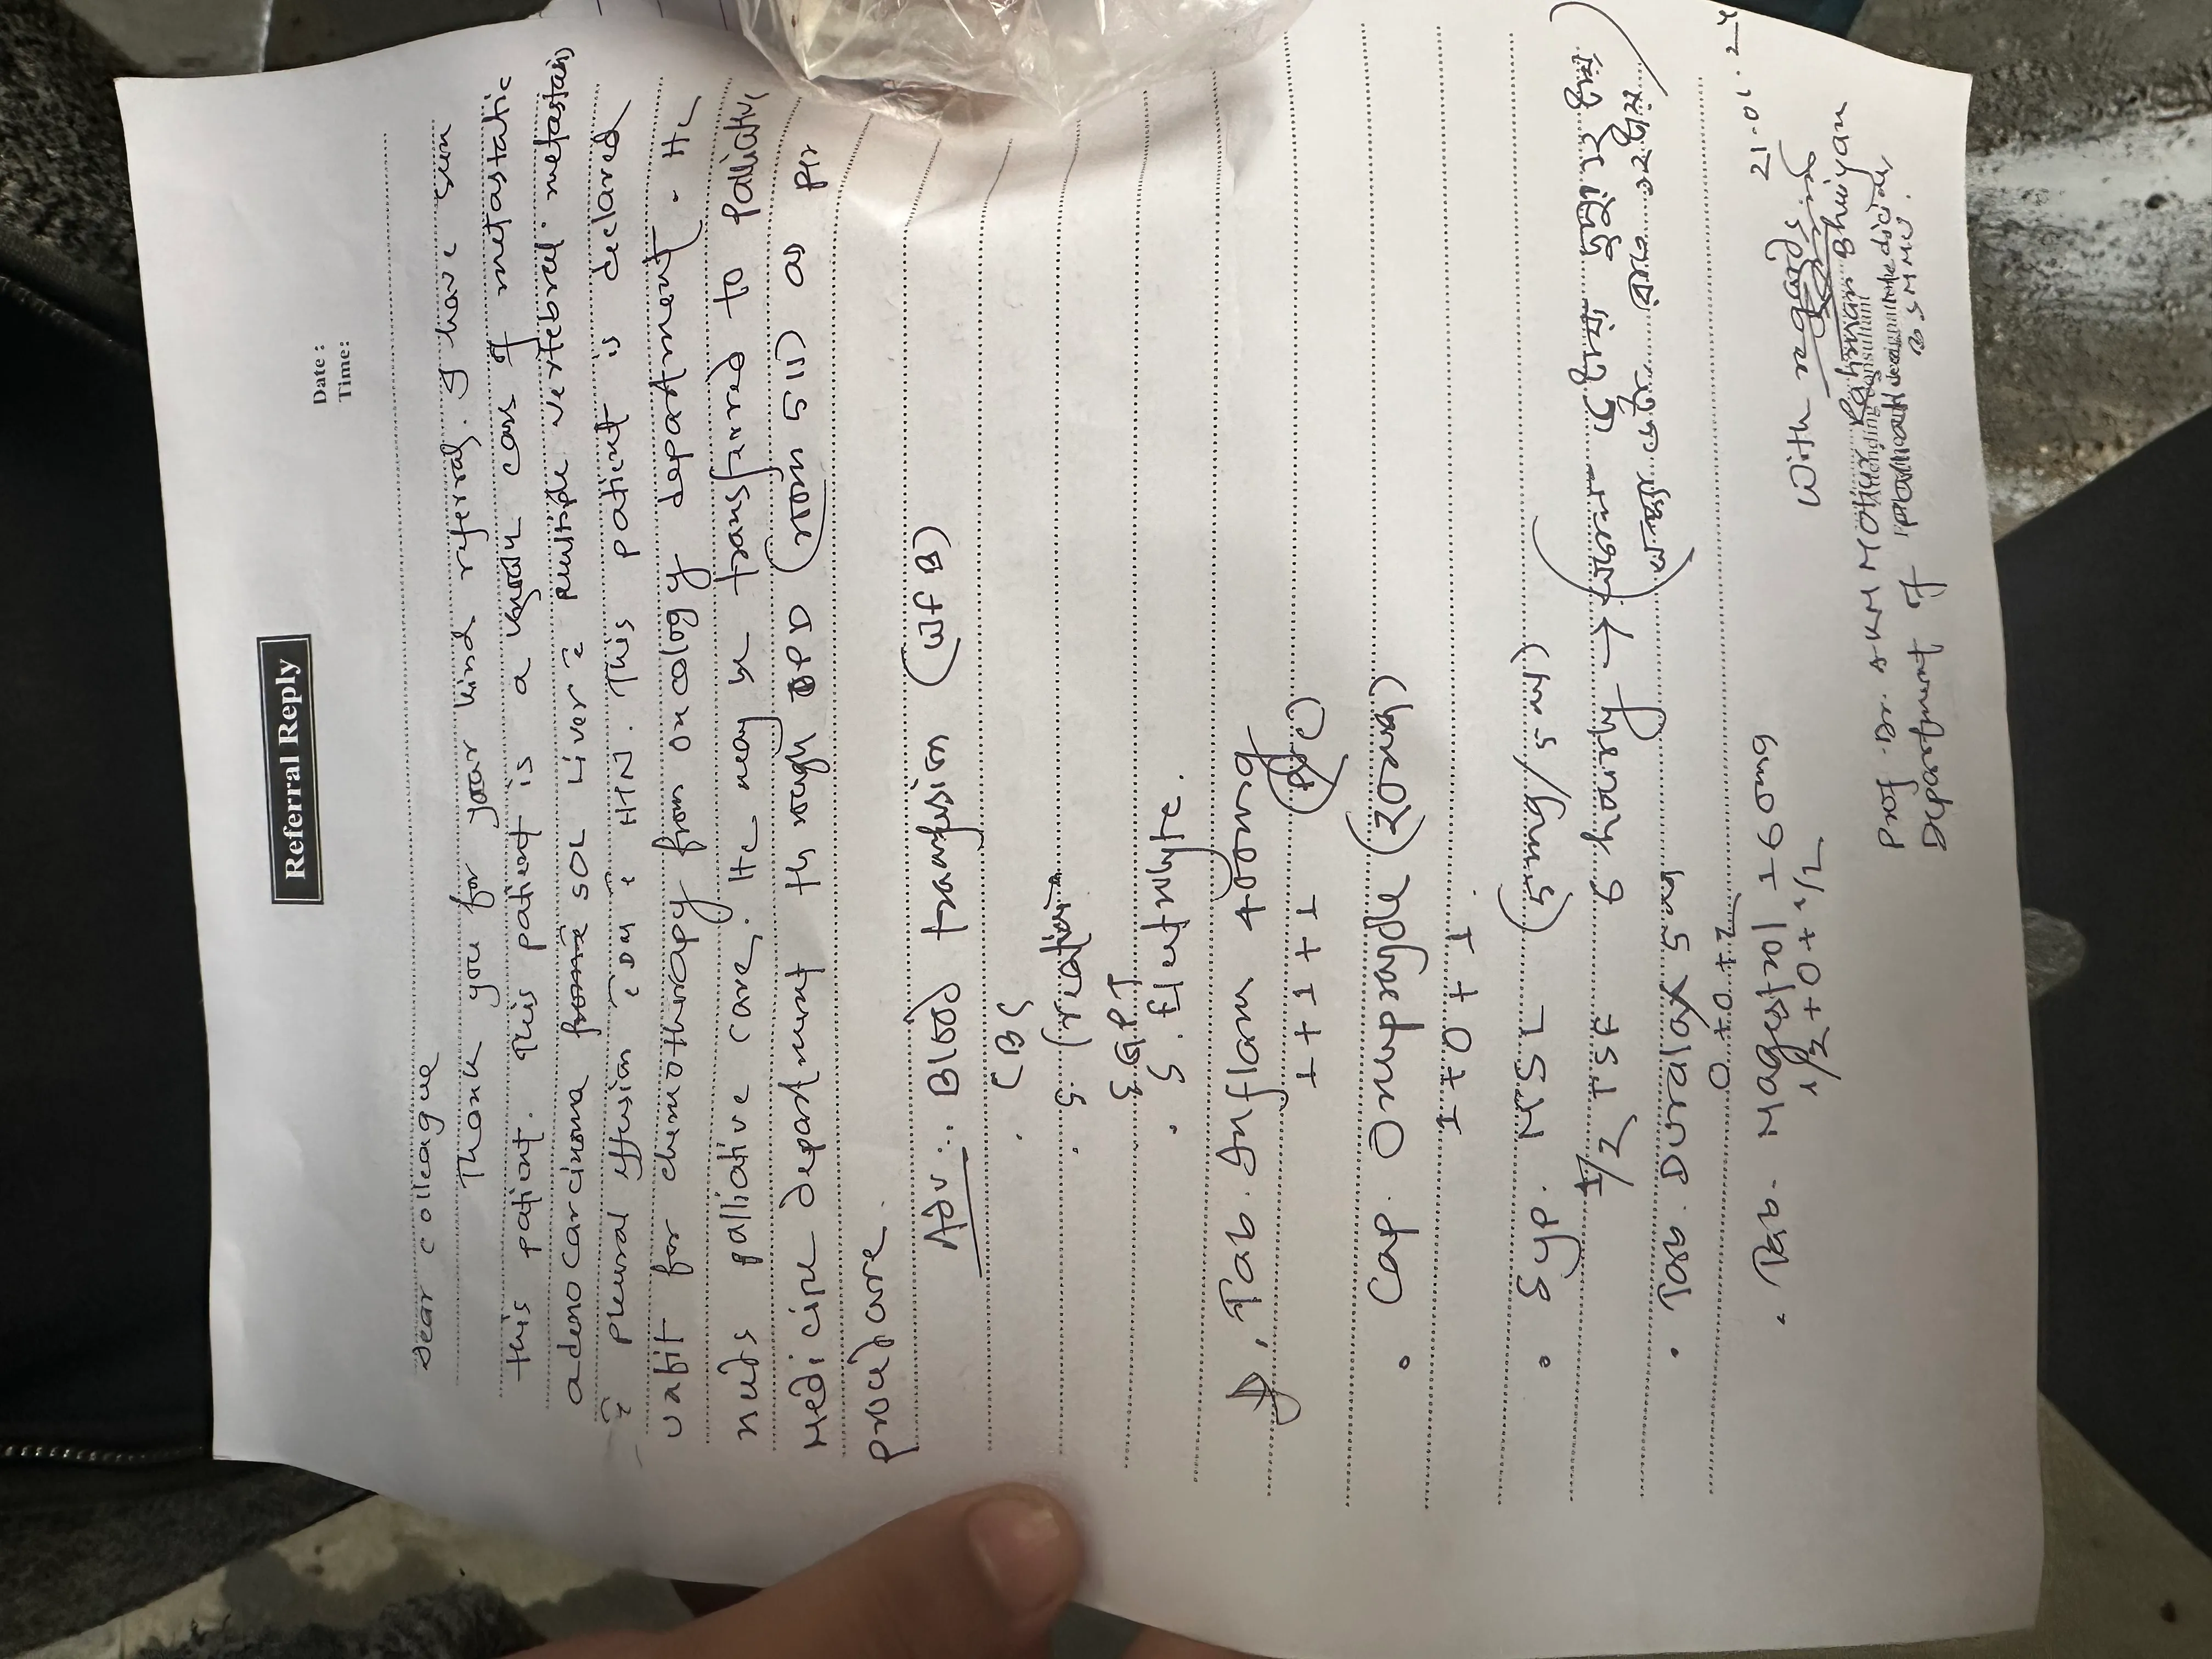 Referral Reply
Date :
Time:
Dear colleague
Thank you for your kind referral. I have seen
this patient. This patient is a known case of metastatic
adenocarcinoma SOL Liver c̄ multiple vertebral metastasis
c̄ pleural effusion c̄ DM c̄ HTN. This patient is declared
unfit for chemotherapy from oncology department. He
needs palliative care. He may be transferred to Palliative
Medicine department through OPD (room 511) as per
procedure.
Adv: Blood transfusion
. CBC
. S. Creatinine
SGPT
. S. Electrolyte.
Tab. Inflam 400mg
1+1+1
. Cap. Omeprazole (20mg)
1+0+1
. Syp. (5mg/5ml)
1/2 TSF 6 hourly →
. Tab. Duralax 5mg
0+0+2
. Tab. Magestrol 160mg
1/2+0+1/2
21.01.24
With regards
Prof. Dr. AKM Motiur Rahman Bhuiyan
Department of Palliative Medicine,
BSMMU.